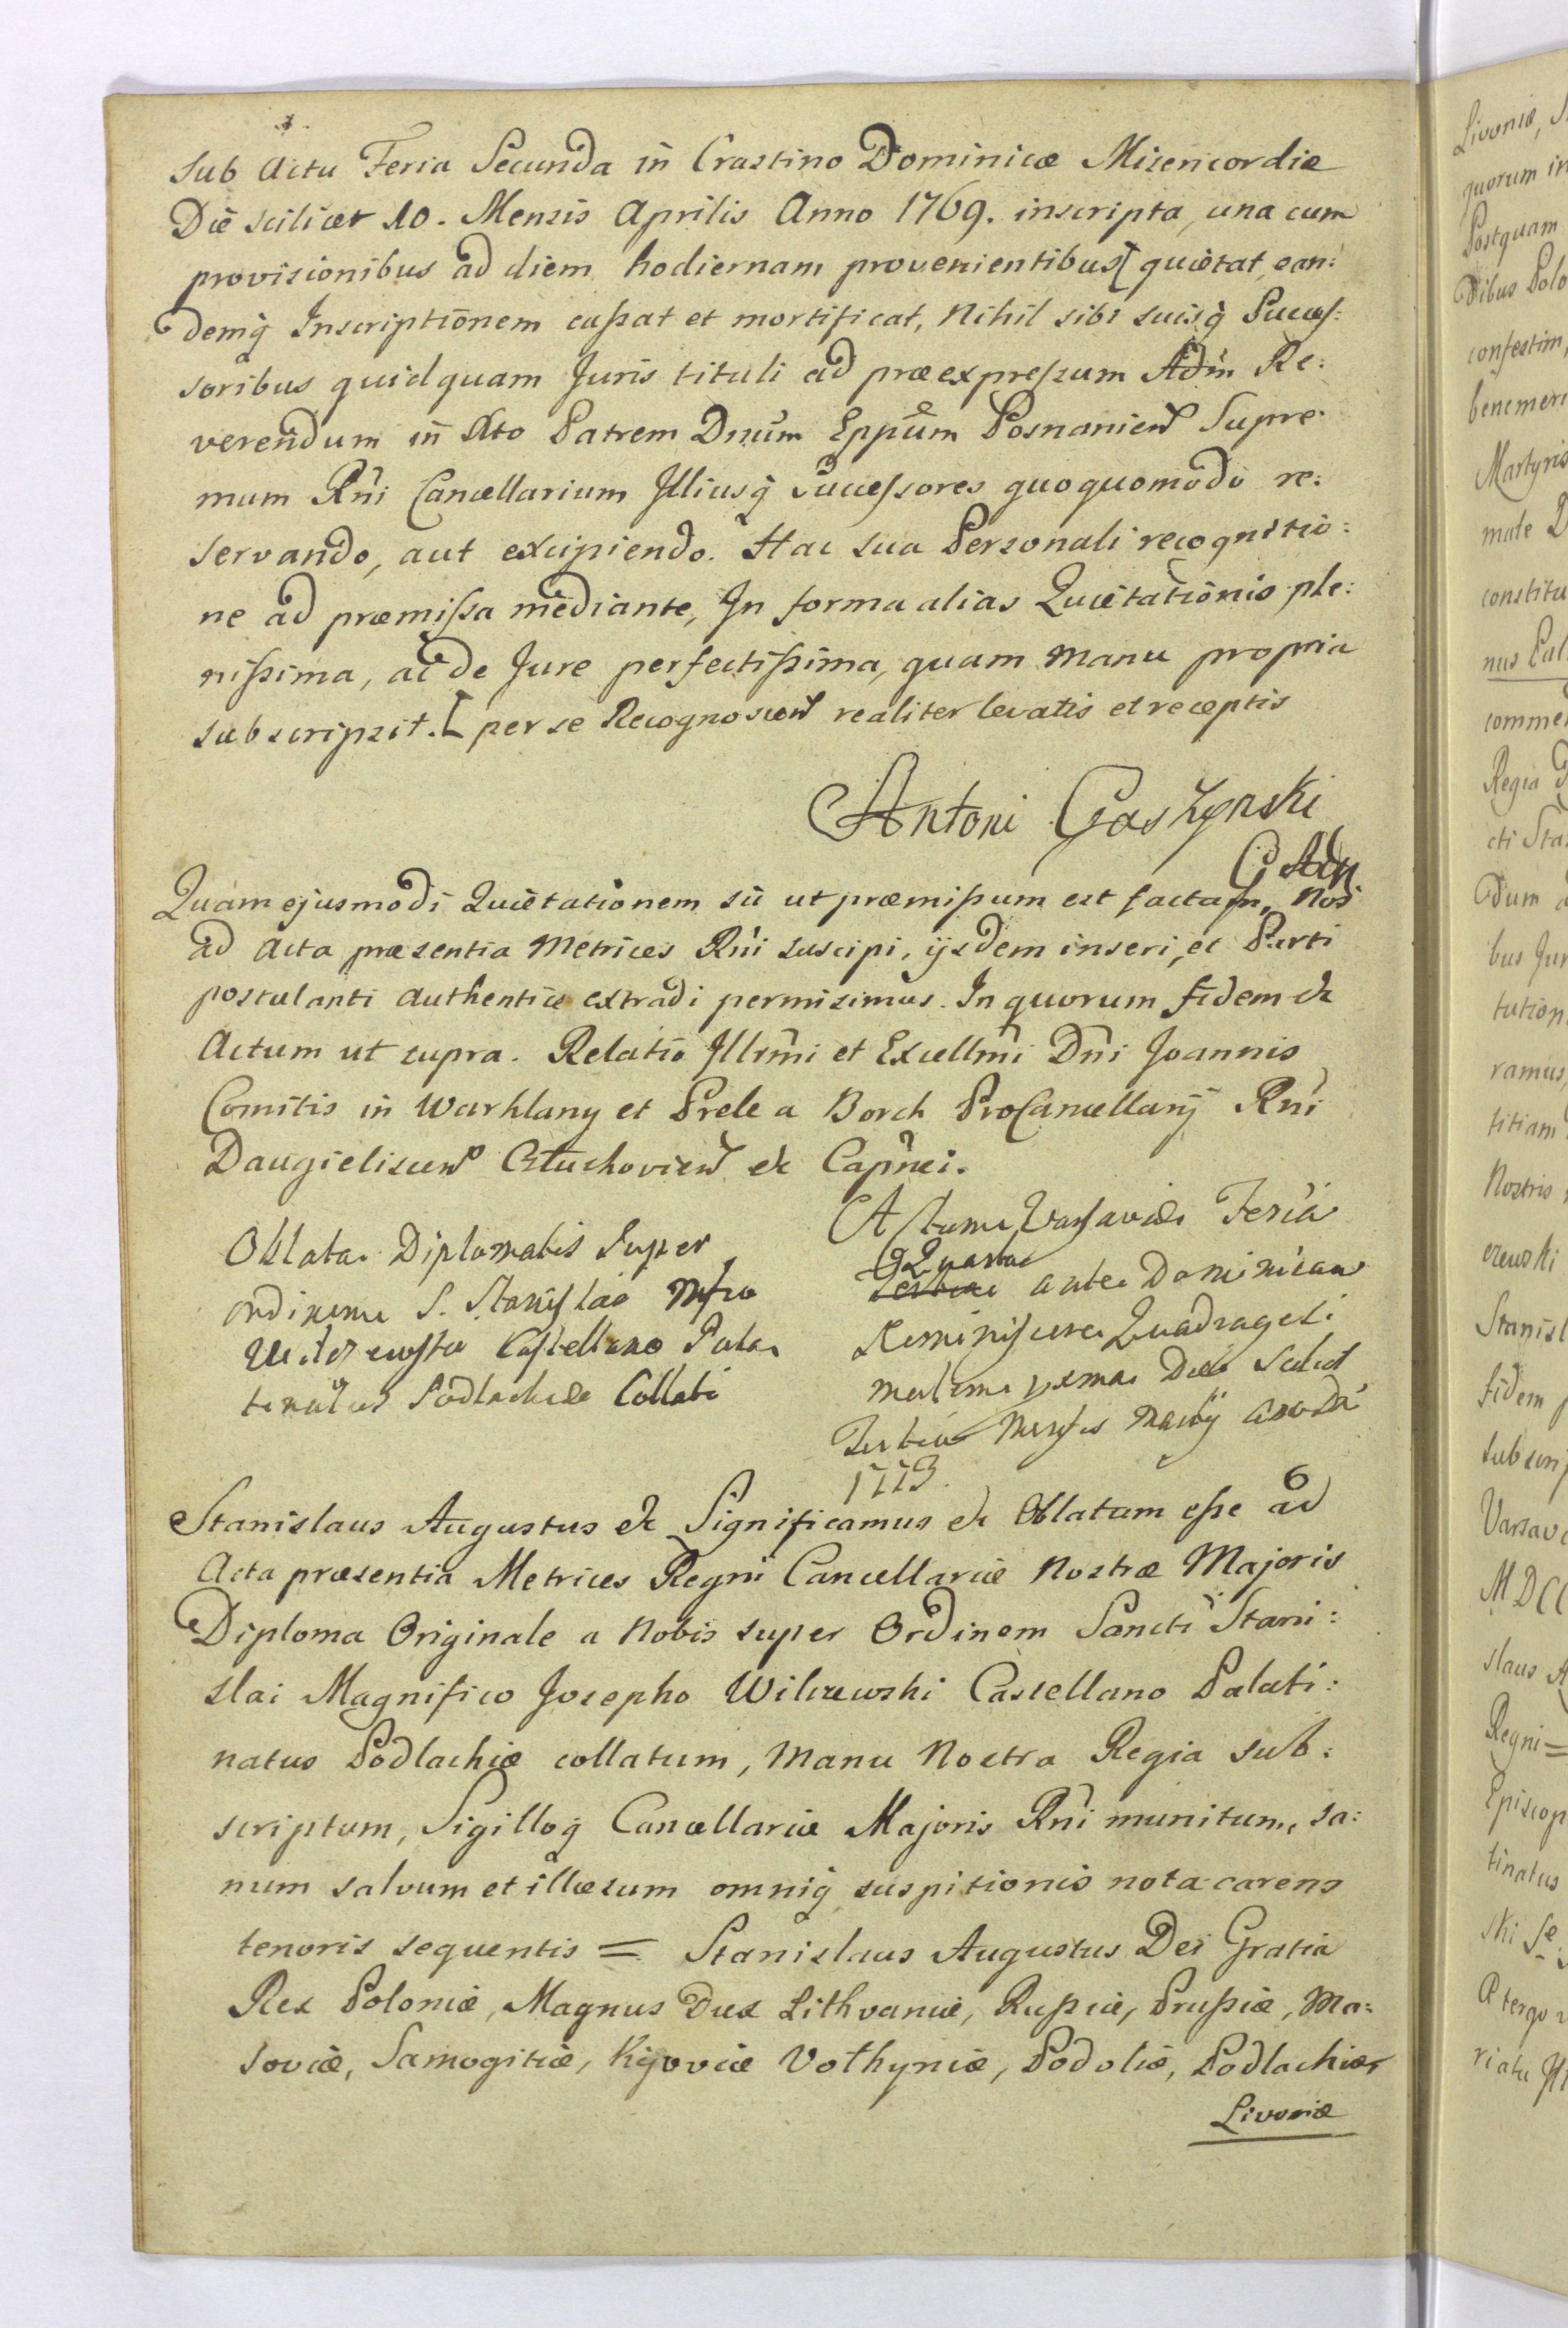 sub Actu Feria Secunda in Crastino Dominicæ Misericordiæ
Die scilicet 10. Mensis Aprilis Anno 1769. inscripta, una cum
provisionibus ad diem hodiernam provenientibus [ quietat, ean:
demq̃ Inscriptionem cassat et mortificat, Nihil sibi suisq̃ Succes:
soribus quidquam Juris tituli ad præexpressum Adm̃ Re:
verendum in Xto Patrem Dnum Eppum Posnanien Supre:
mum Rñi Cancellarium Illiusq̃ Successores quoquomodo re:
servando, aut excipiendo. Hac sua Personali recognitio:
ne ad præmissa mediante, In forma alias Quietationis ple:
nissima, ac de Jure perfectissima, quam Manu propria
subscripsit. [ per se Recognoscen realiter levatis et receptis
Antoni Gaszynski
Quam ejusmodi Quietationem sic ut præmissum est factam, Nos
ad Acta præsentia Metrices Rñi suscipi, ijsdem inseri, et Parti
postulanti Authentice extradi permisimus. In quorum fidem &
Actum ut supra. Relatio Illrmi et Excellmi Dñi Joannis
Comitis in Warklany et Prele a Borch ProCancellarij Rñi
Daugieliscen Człuchovien & Capnei.
Oblata Diplomatis Super
ordinem S. Stanislao Mfco
Wilczewski Castellano Pala
tinatus Podlachiæ Collati
Actum Varsaviæ Feria
Quarta
Tertia ante Dominicam
Reminiscere Quadragesi
malem prima Die Scilicet
Tertia Mensis Martij
1773.
Stanislaus Augustus & Significamus & Oblatum esse ad
Acta præsentia Metrices Regni Cancellariæ Nostræ Majoris
Diploma Originale a Nobis super Ordinem Sancti Stani:
slai Magnifico Josepho Wilczewski Castellano Palati:
natus Podlachiæ collatum, Manu Nostra Regia sub:
scriptum, Sigilloq̃ Cancellariæ Majoris Rñi munitum, sa:
num salvum et illæsum omniq̃ suspitionis nota carens
tenoris sequentis = Stanislaus Augustus Dei Gratia
Rex Poloniæ, Magnus Dux Lithvaniæ, Russiæ, Prussiæ, Ma:
soviæ, Samogitiæ, Kijoviæ Volhyniæ, Podoliæ, Podlachiæ,
Livoniæ
Livoniæ,
quorum
Postquam
dibus Polo
confestim,
benemeri
Martyris
male
constitu
nus Cal
comme
Regia
cti Sta
dum
bus Jur
tution
ramus
titiam
Nostris
czewski
Stanisl
fidem
subscri
Varsav
MDCC
slaus A
Regni =
Episcop
tinatus
ski
A tergo
riatu